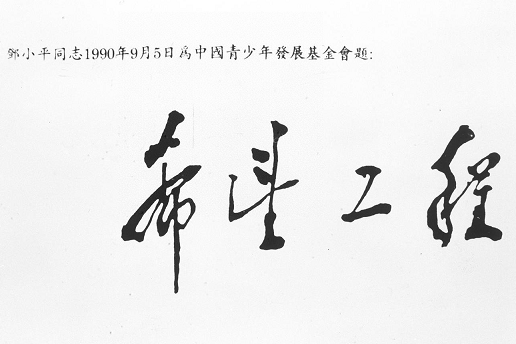 鄧小平同志1990年9月5日爲中國青少年發展基金會題:
希望工程